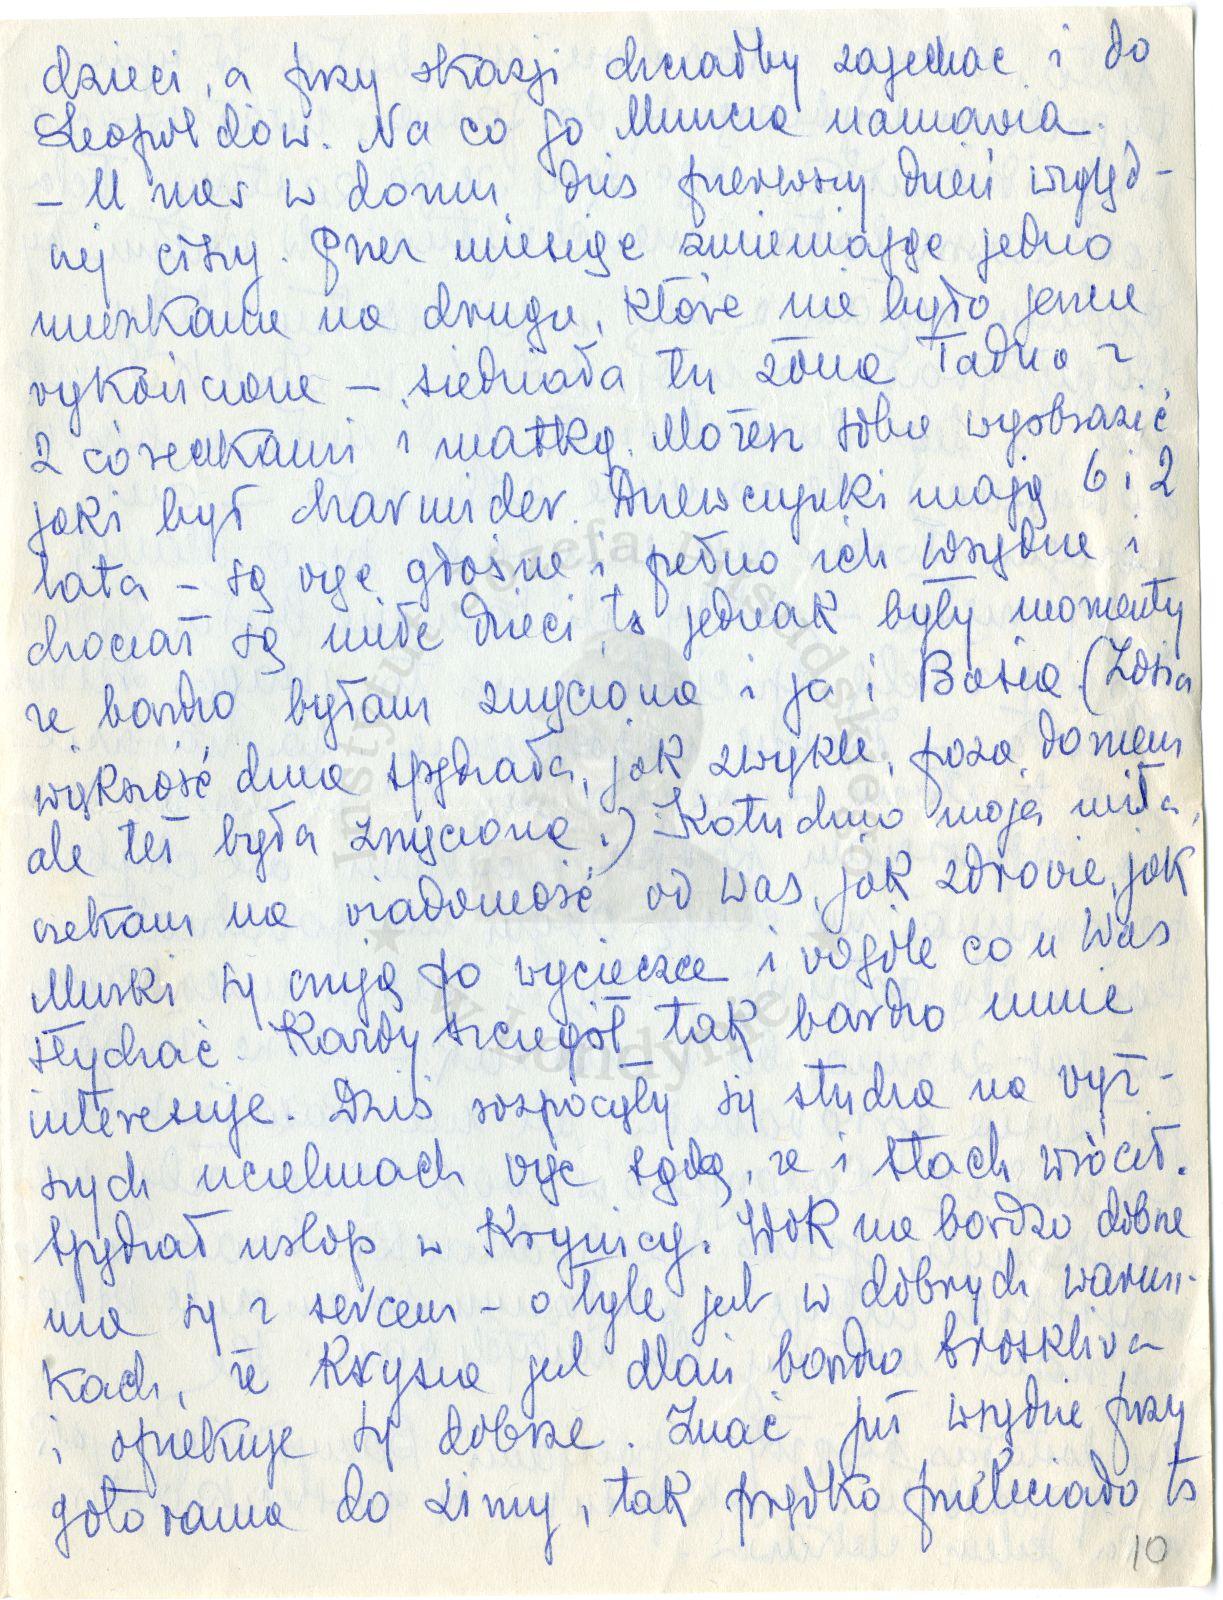 dzieci, a przy okazji chciałby zajechać i do
Leopoldów. Na co go Muncia namawia.
– U nas w domu dziś pierwszy dzień względ-
nej ciszy. Przez miesiąc zmieniając jedno
mieszkanie na drugie, które nie było jeszcze
wykończone – siedziała tu żona Tadzia z
2 córeczkami i matką. Możesz sobie wyobrazić
jaki był harmider. Dziewczynki mają 6 i 2
lata – są więc głośne i pełno ich wszędzie i
chociaż są miłe dzieci, to jednak były momenty
że bardzo byłam zmęczona i ja i Basia (Zosia
większość dnia spędzała, jak zwykle, poza domem
ale też była zmęczona.) Kotuchno moja miła,
czekam na wiadomość od Was, jak zdrowie, jak
Muszki się czują po wycieczce i wogóle co u Was
słychać. Każdy szczegół tak bardzo mnie
interesuje. Dziś rozpoczęły się studia na wyż-
szych uczelniach więc sądzę, że i Stach wrócił.
Spędzał urlop w Krynicy. nie bardzo dobrze
ma się z sercem – o tyle jest w dobrych warun-
kach, że Krysia jest dlań bardzo troskliwa
i opiekuje się dobrze. Znać już wszędzie przy
gotowania do zimy, tak prędko przeleciało to
10
Instytut Józefa Piłsudskiego
w Londynie